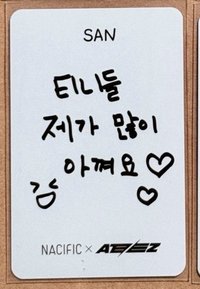 SAN
티니들
제가 많이
아껴요♡
NACIFIC × ATEEZ